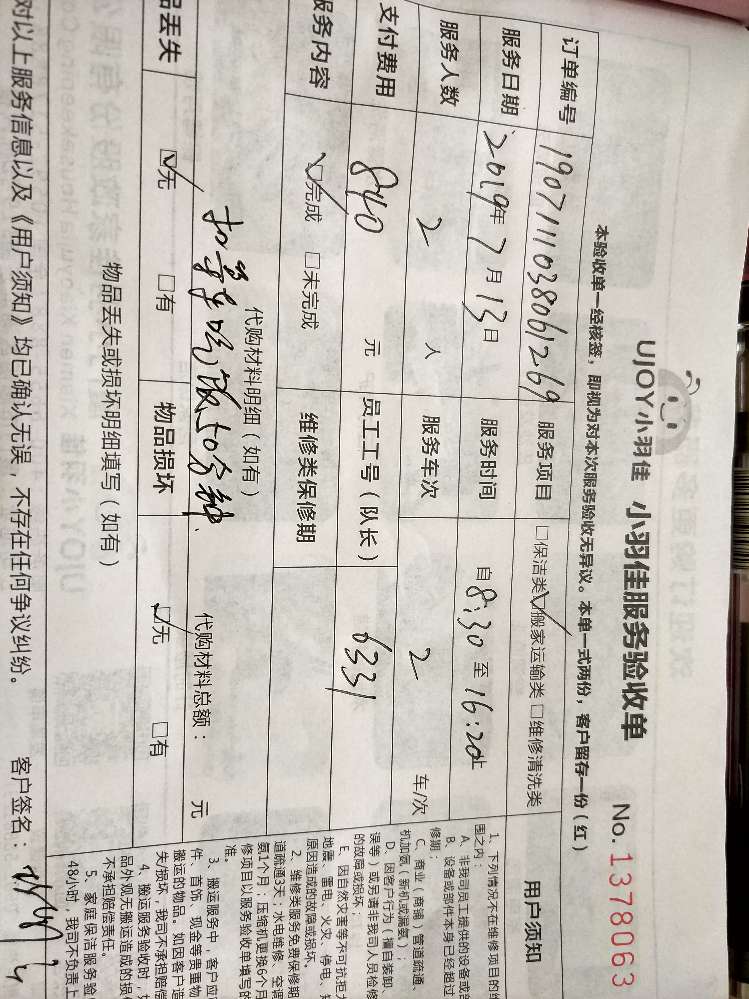 UJOY小羽佳 小羽佳服务验收单 No. 1378063
本验收单一经核签，即视为对本次服务验收无异议。本单一式两份，客户留存一份（红）
订单编号 1907111038061269 服务项目 □保洁类 ☑搬家运输类 □维修清洗类
服务日期 2019年7月13日 服务时间 自8:30至16:20止
服务人数 2 人 服务车次 2 车/次
支付费用 840 元 员工工号（队长） 6331
服务内容 ☑完成 □未完成 维修类保修期
代购材料明细（如有） 代购材料总额： 元
吃饭50分钟
品丢失 ☑无 □有 物品损坏 ☑无 □有
物品丢失或损坏明细填写（如有）
对以上服务信息以及《用户须知》均已确认无误，不存在任何争议纠纷。 客户签名：
用户须知
1、下列情况不在维修项目的
围之内：
A、非我司员工提供的设备或
B、设备或部件本身已经超过
修期；
C、商业（商铺）管道疏通、
机加氨（新机或漏氨）；
D、因客户行为（擅自装卸、
误等）或另请非我司人员检修
的故障或损坏；
E、因自然灾害等不可抗拒
地震、雷电、火灾、停电、
原因造成的故障或损坏。
2、维修类服务免费保修期
道疏通3天；水电维修、空调
氨1个月；压缩机更换6个月
修项目以服务验收单填写的
准。
3、搬运服务中，客户应
件、首饰、现金等贵重物
搬运的物品，如因客户
失/损坏，我司不承担赔偿
4、搬运服务验收时，
品外观无搬运造成的损
不承担赔偿责任。
5、家庭保洁服务验
48小时，我司不负责上